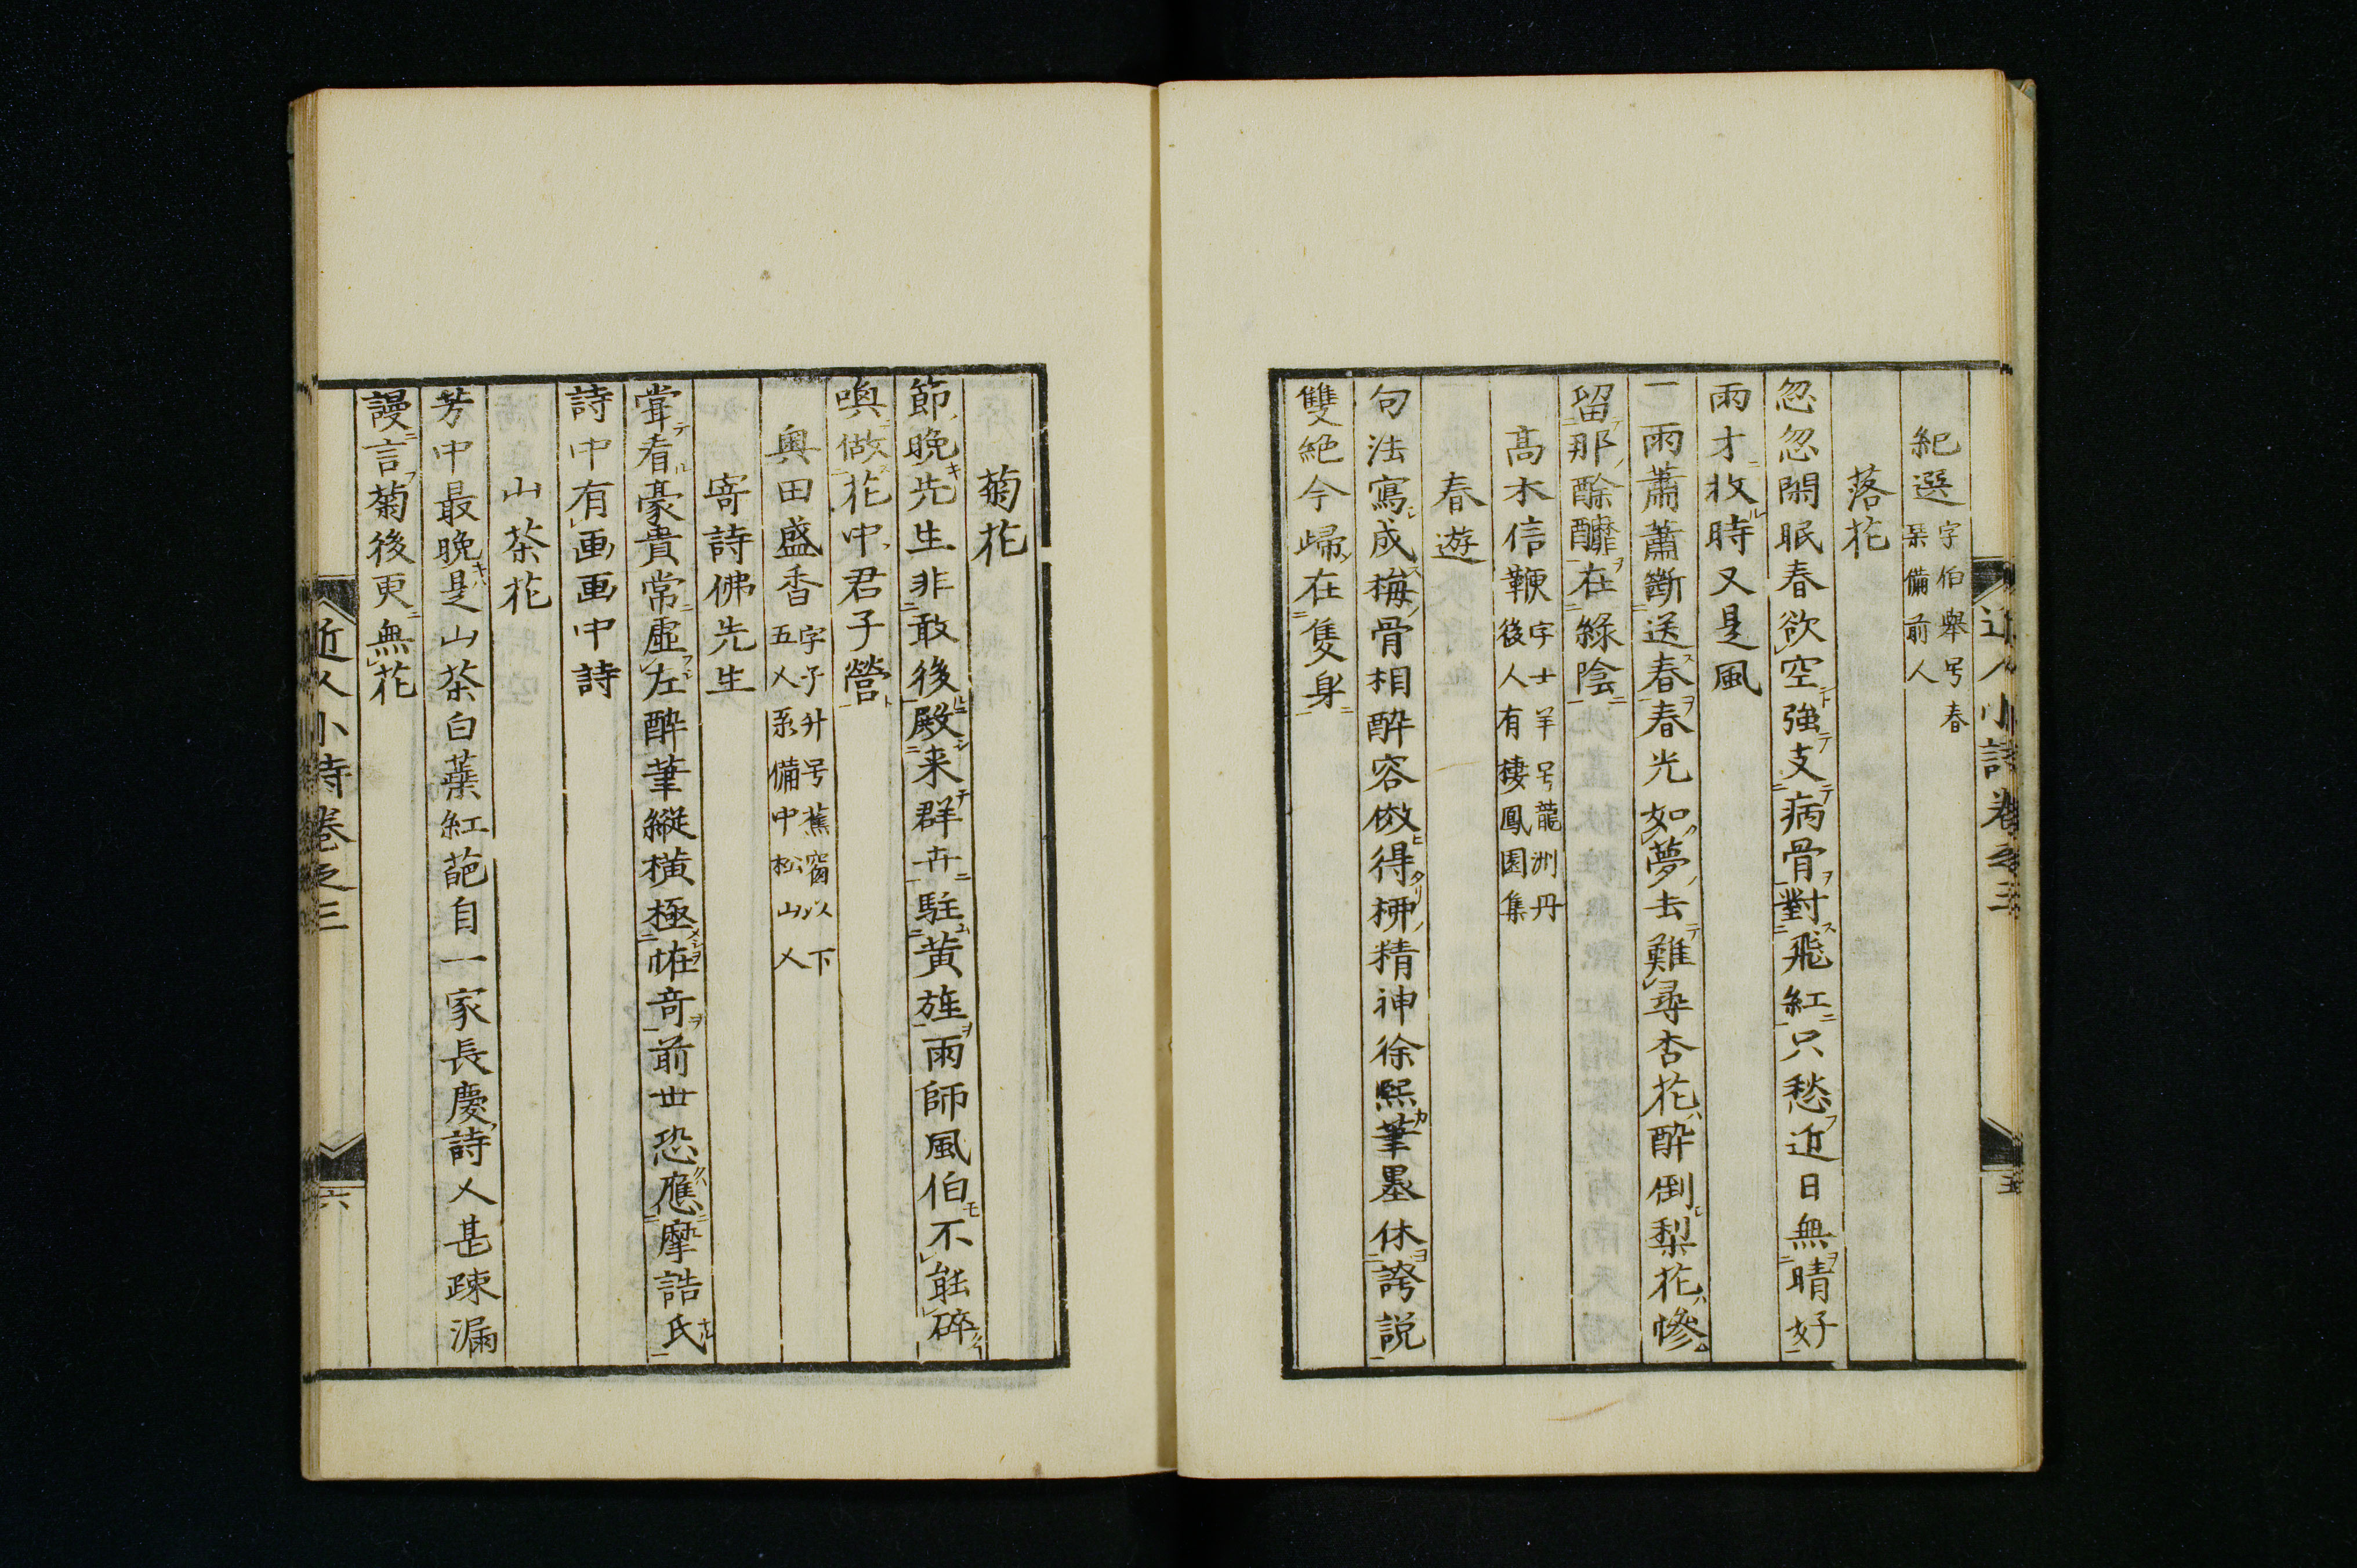 近人小詩卷之三
五
紀選 字伯舉号春
杲備前人
落花
忽忽閑眠春欲空強支病骨對飛紅只愁近日無晴好
雨才收時又是風
一雨蕭蕭斷送春春光如夢去難尋杏花酔倒梨花慘
留那酴醿在綠陰
髙木信鞭 字士羊号龍洲丹
後人有棲鳳園集
春遊
句法寫成梅骨相酔容倣得柳精神徐熙筆墨休誇説
雙絶今歸在隻身
菊花
節晚先生非敢後殿来群卉駐黄旌雨師風伯不能碎
喚做花中君子營
奥田盛香 字子升号蕉窗以下
五人系備中松山人
寄詩佛先生
甞看豪貴常虛左酔筆縱橫極恠竒前世恐應摩詰氏
詩中有画画中詩
山茶花
芳中最晚是山茶白蘂紅葩自一家長慶詩人甚踈漏
謾言菊後更無花
近人小詩卷之三
六